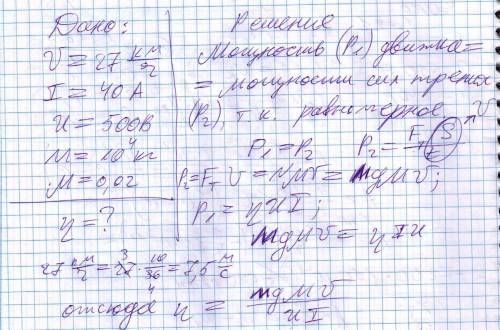 Дано:
V = 27 км/ч
I = 40 А
U = 500В
M = 10⁴ кг
μ = 0,02
η = ?
Решение
Мощность (P₁) движка =
= мощности сил трения
(P₂), т.к. равномерное
P₁ = P₂ P₂ = F S/t → V
P₂ = Fт V = μMV = mgμV;
P₁ = ηUI;
mgμV = ηIU
27 км/ч = 27 · 10/36 = 7,5 м/с
отсюда η = mgμV/UI